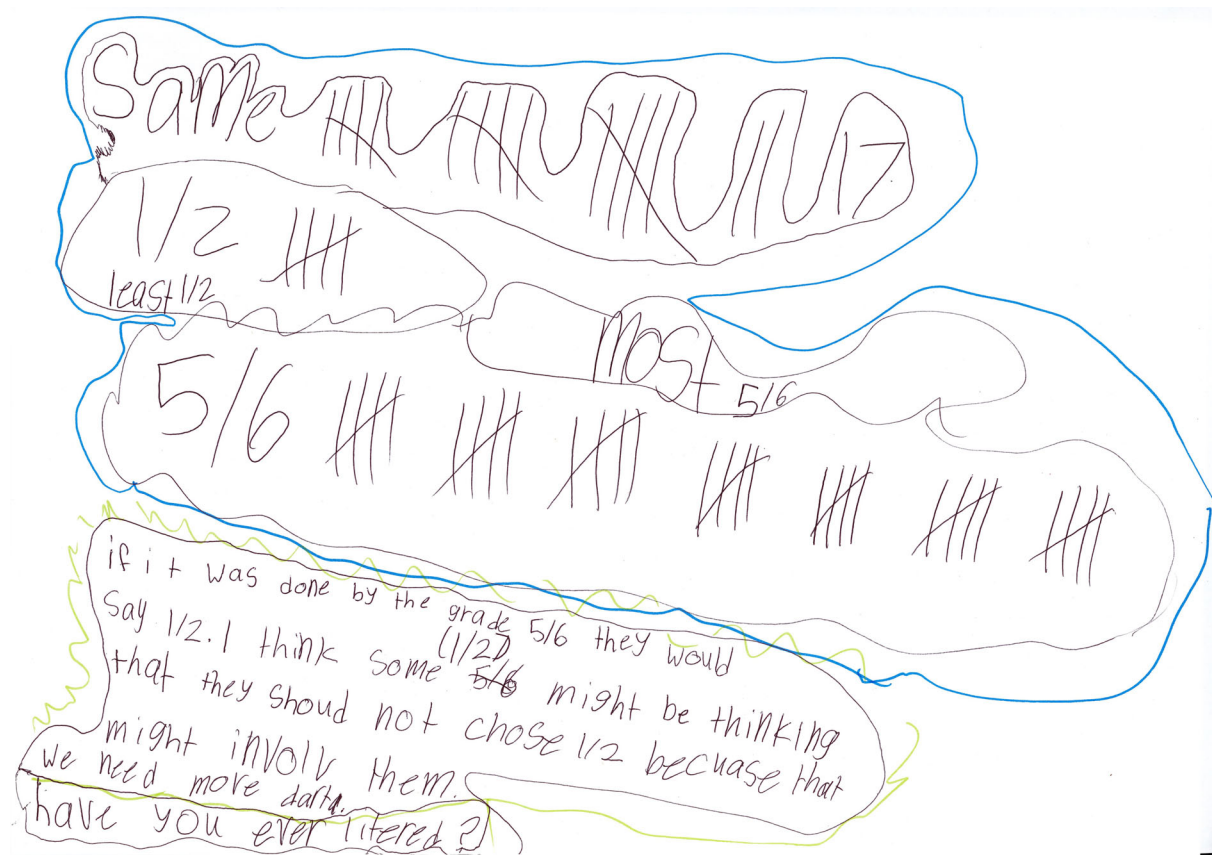 Same 17
1/2
least 1/2
most 5/6
5/6
if it was done by the grade 5/6 they would
say 1/2. I think some (1/2) 5/6 might be thinking
that they shoud not chose 1/2 becuase that
might involv them.
we need more darta.
have you ever litered?